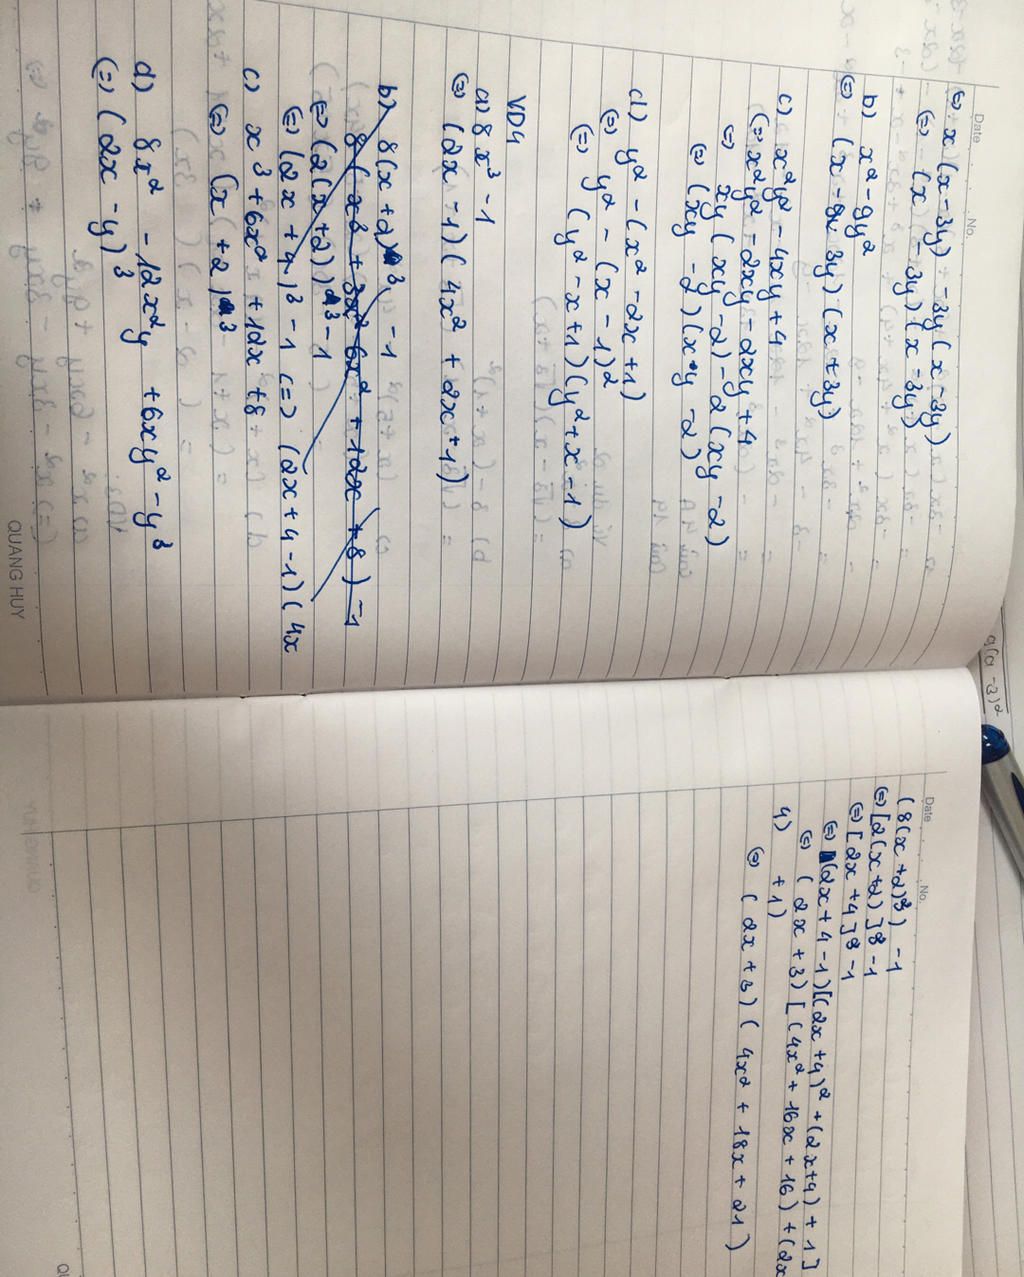 Date No.
(=) x(x-3y) + 3y(x-3y)
(=) (x + 3y)(x - 3y)
b) x² - 9y²
(=) (x - 3y)(x + 3y)
c) x²y² - 4xy + 4
(=) x²y² - 2xy - 2xy + 4
(=) xy(xy - 2) - 2(xy - 2)
(=) (xy - 2)(xy - 2)
d) y² - (x² - 2x + 1)
(=) y² - (x - 1)²
(=) (y² - x + 1)(y² + x - 1)
VD4
a) 8x³ - 1
(=) (2x - 1)(4x² + 2x + 1)
b) 8(x + 2)³ - 1
8(x³ + 6x² + 12x + 8) - 1
(=) (2(x + 2))³ - 1
(=) (2x + 4)³ - 1 (=) (2x + 4 - 1)(4x
c) x³ + 6x² + 12x + 8
(=) (x + 2)³
d) 8x² - 12x²y + 6xy² - y³
(=) (2x - y)³
QUANG HUY
9(a - 3)²
Date No.
(8(x + 2)³) - 1
(=) [2(x + 2)]³ - 1
(=) [2x + 4]³ - 1
(=) (2x + 4 - 1)[(2x + 4)² + (2x + 4) + 1]
(=) (2x + 3)[(4x² + 16x + 16) + (2x
4) + 1)
(=) (2x + 3)(4x² + 18x + 21)